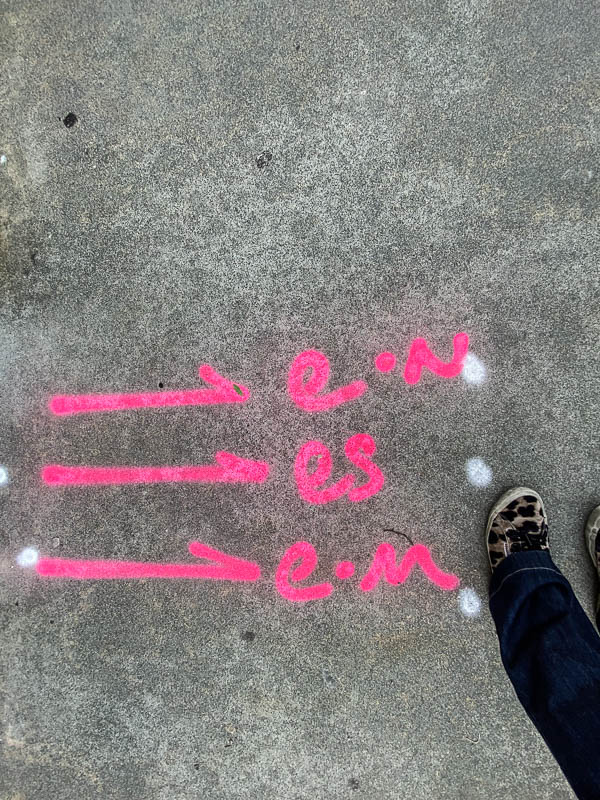 e.N
es
e.m